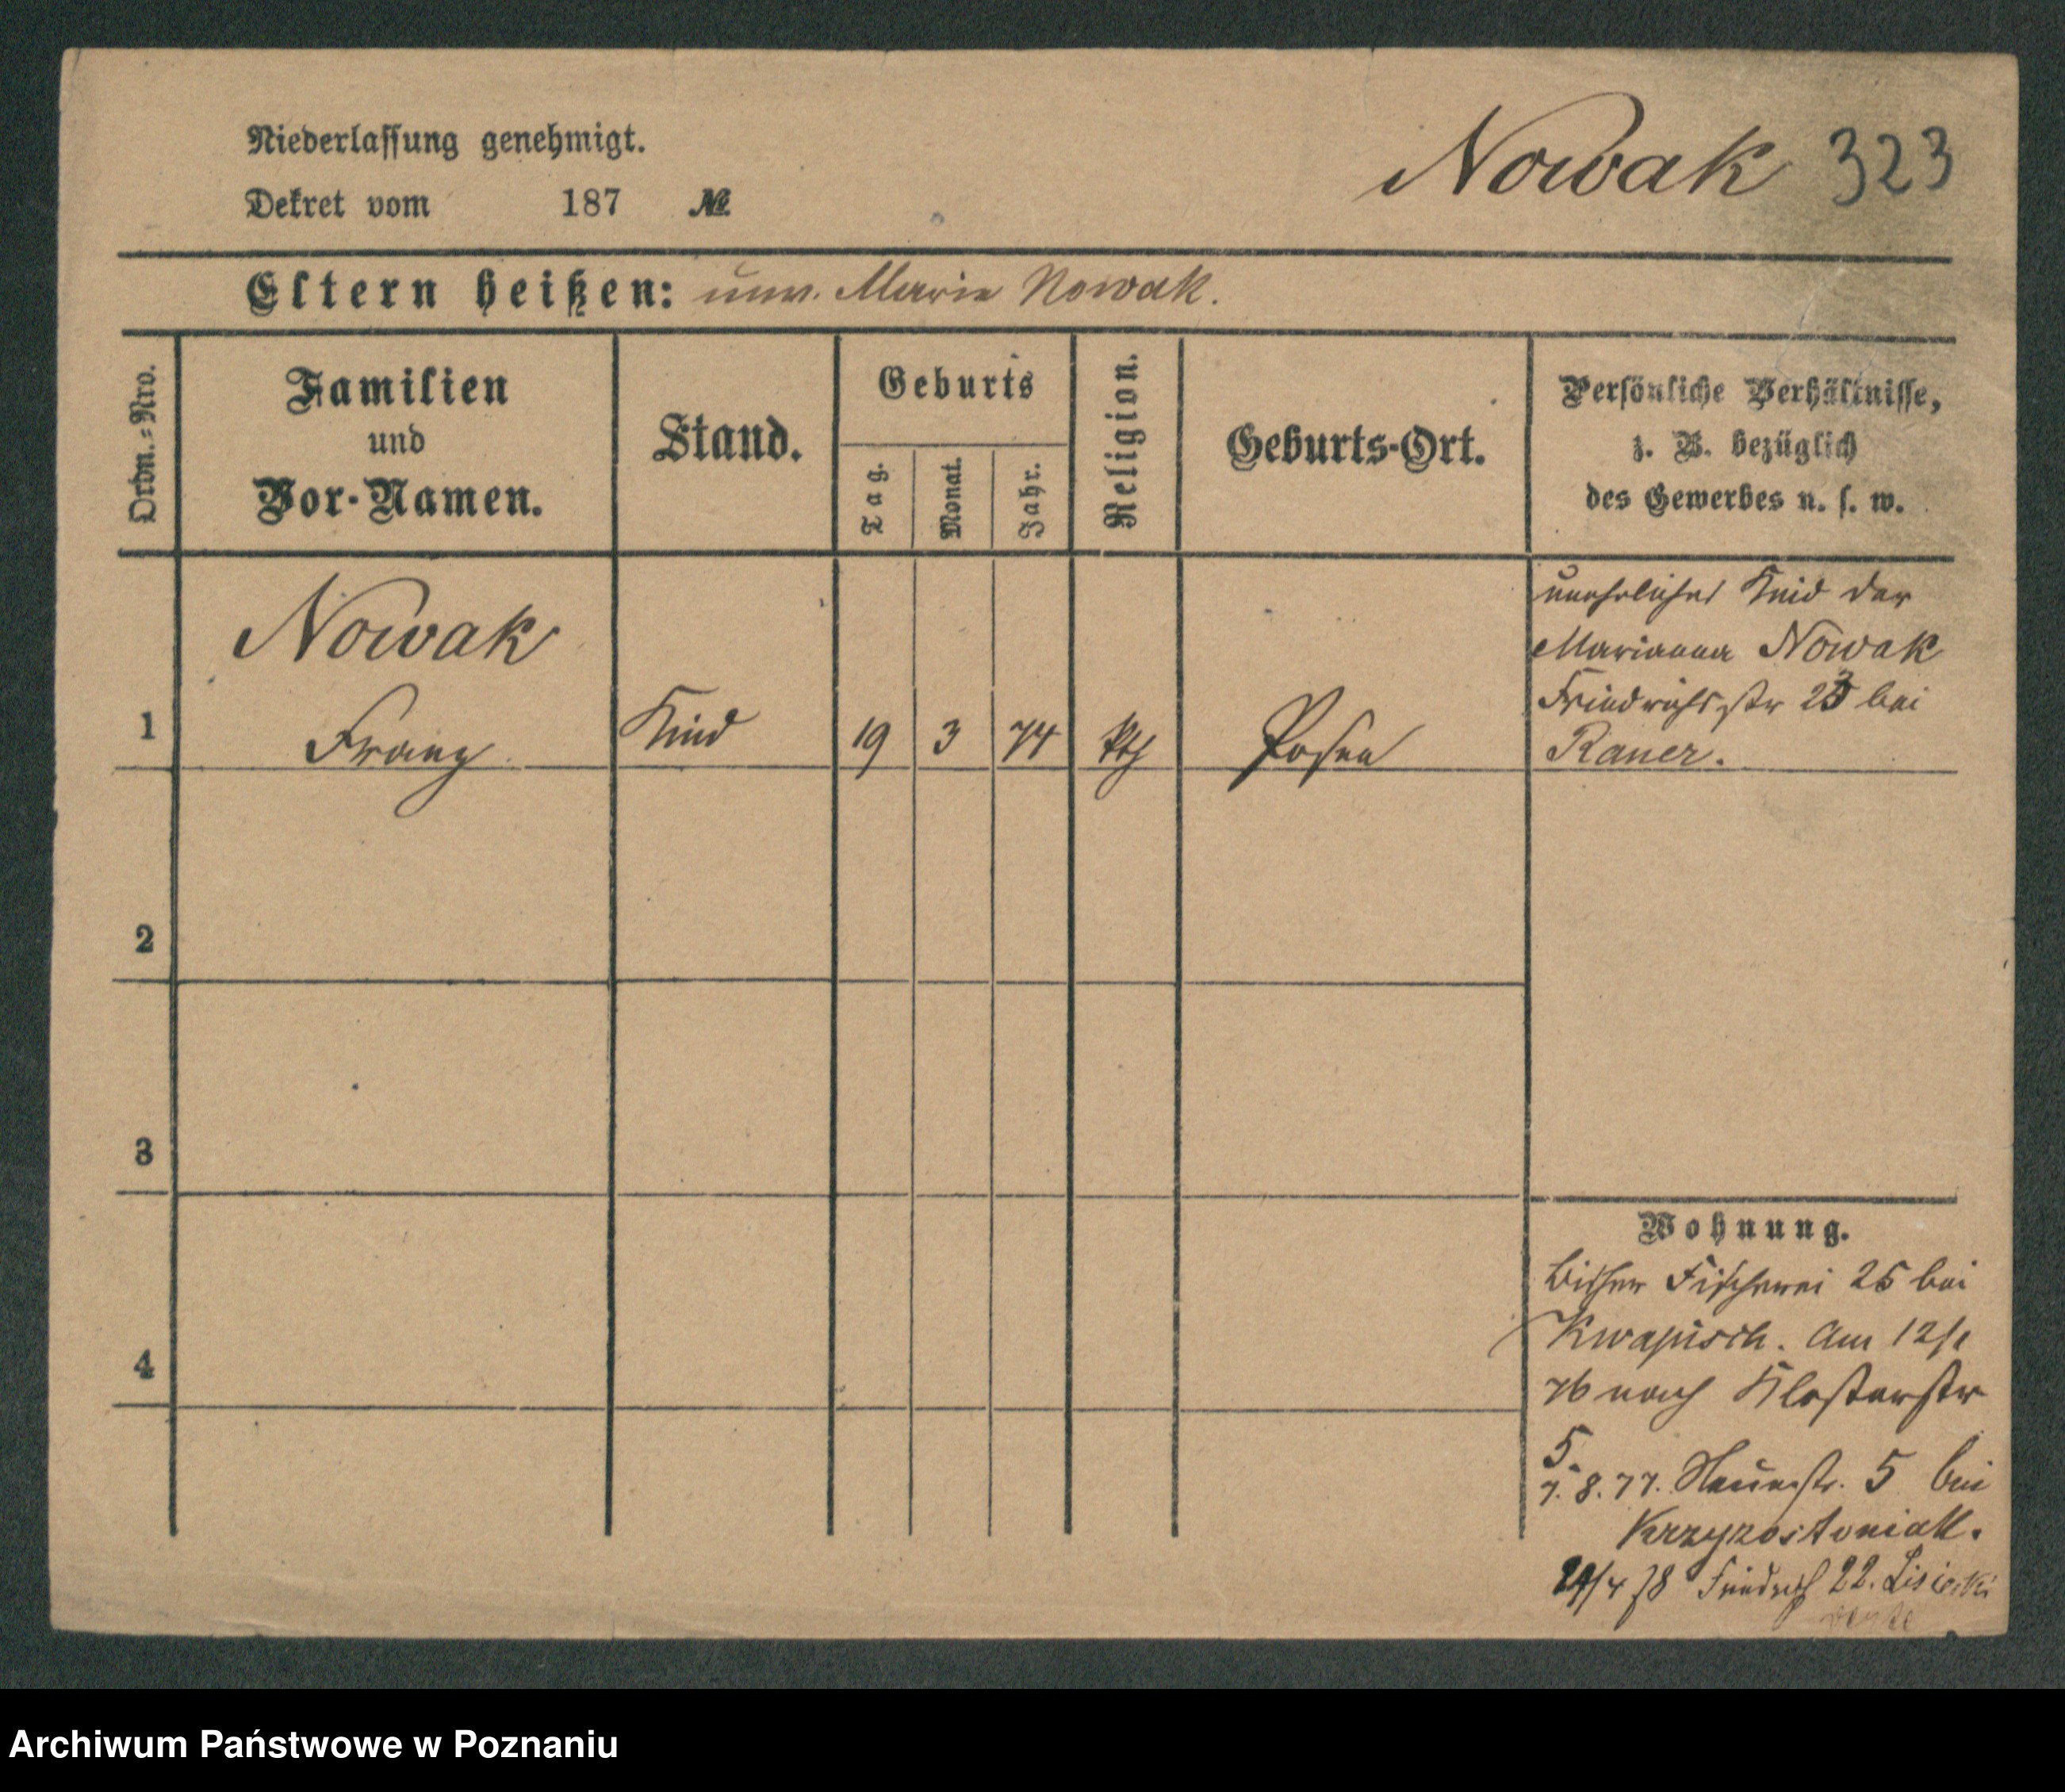 Niederlassung genehmigt.
Dekret vom 187 №
Nowak 323
Eltern heißen: unv. Marie Nowak.
Ordn.=Nro.
Familien
und
Vor-Namen.
Stand.
Geburts
Tag.
Monat.
Jahr.
Religion.
Geburts-Ort.
Persönliche Verhältnisse,
z. B. bezüglich
des Gewerbes u. s. w.
1
Nowak
Franz
Kind
19
3
74
kth
Posen
unehrliches Kind der
Marianna Nowak
Friedrichsstr 23 bei
Raner.
2
3
4
Wohnung.
bisher Fischerei 25 bei
Kwapisch. Am 12/1
76 nach Klosterstr
5.
7.8.77. Neuestr. 5 bei
Krzyzostoniak.
24/4 78 Friedrich 22. Lisiecki
Archiwum Państwowe w Poznaniu